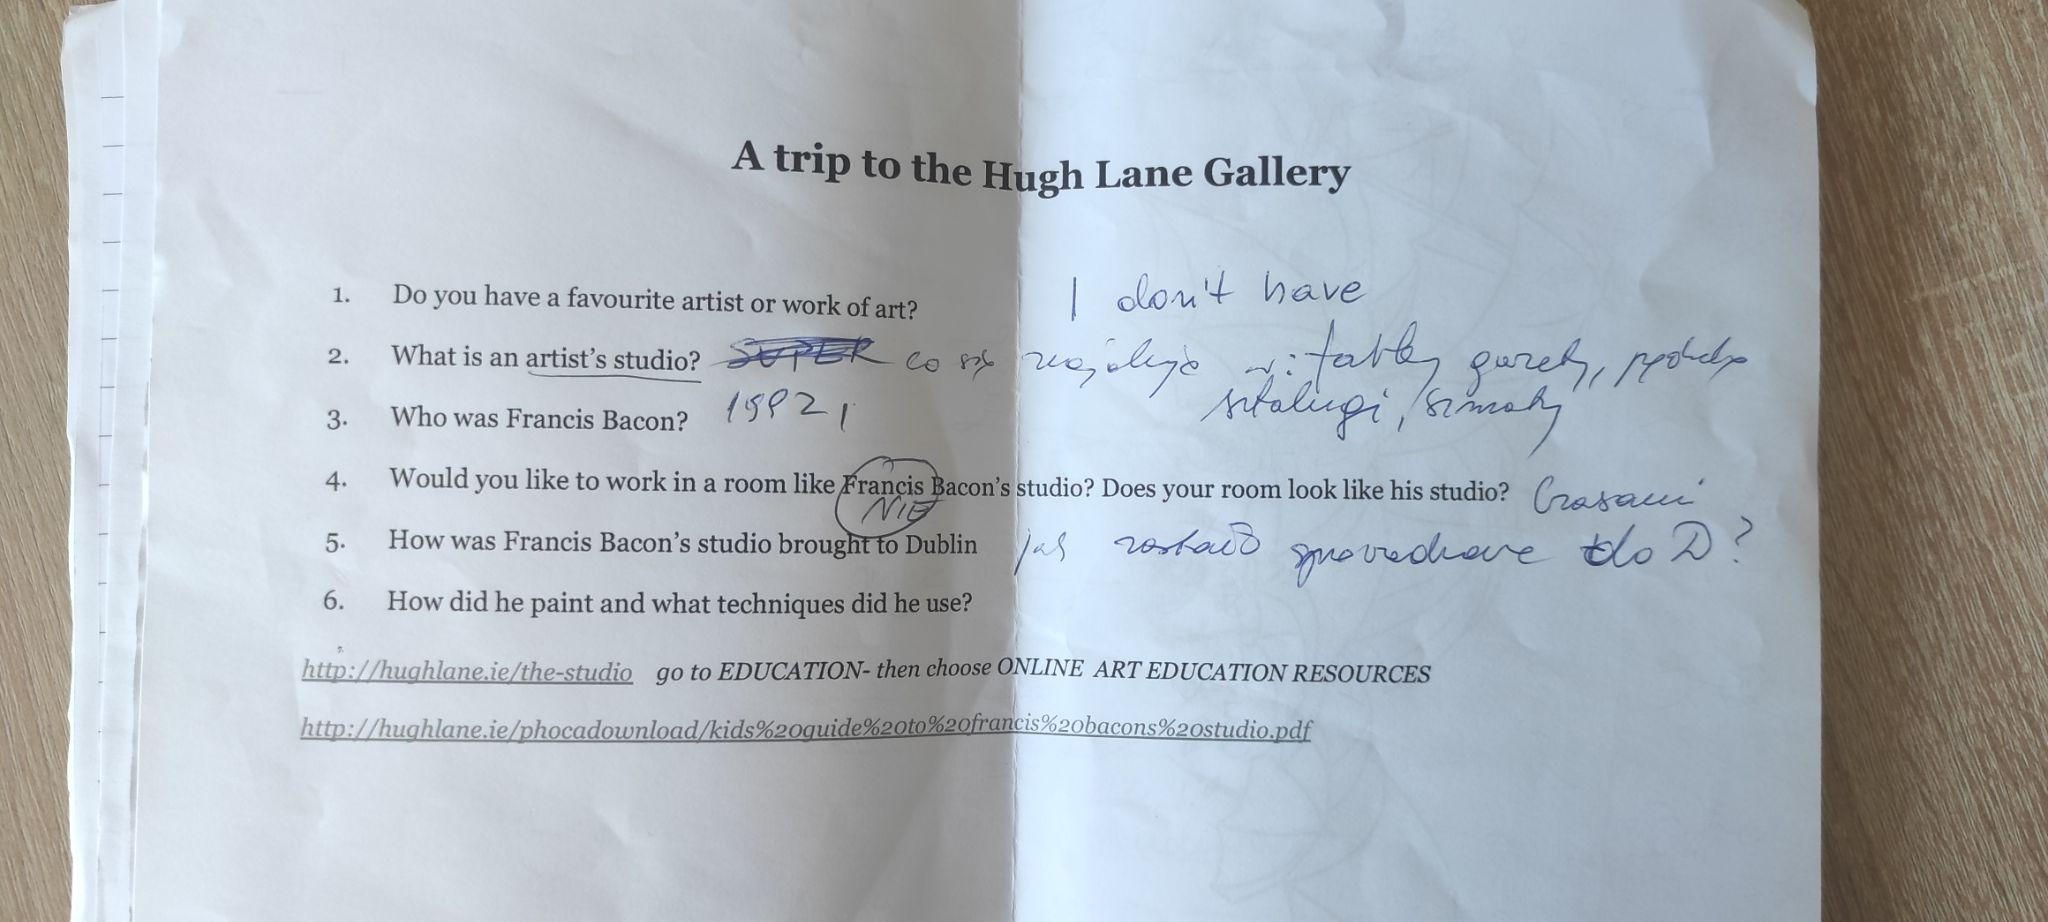 A trip to the Hugh Lane Gallery
1. Do you have a favourite artist or work of art? I don't have
2. What is an artist's studio? SUPER co się znajduje w: farby,
sztalugi, szmaty
3. Who was Francis Bacon? 1992,
4. Would you like to work in a room like Francis Bacon's studio? Does your room look like his studio? Czasami
NIE
5. How was Francis Bacon's studio brought to Dublin jak do D?
6. How did he paint and what techniques did he use?
http://hughlane.ie/the-studio go to EDUCATION- then choose ONLINE ART EDUCATION RESOURCES
http://hughlane.ie/phocadownload/kids%20guide%20to%20francis%20bacons%20studio.pdf